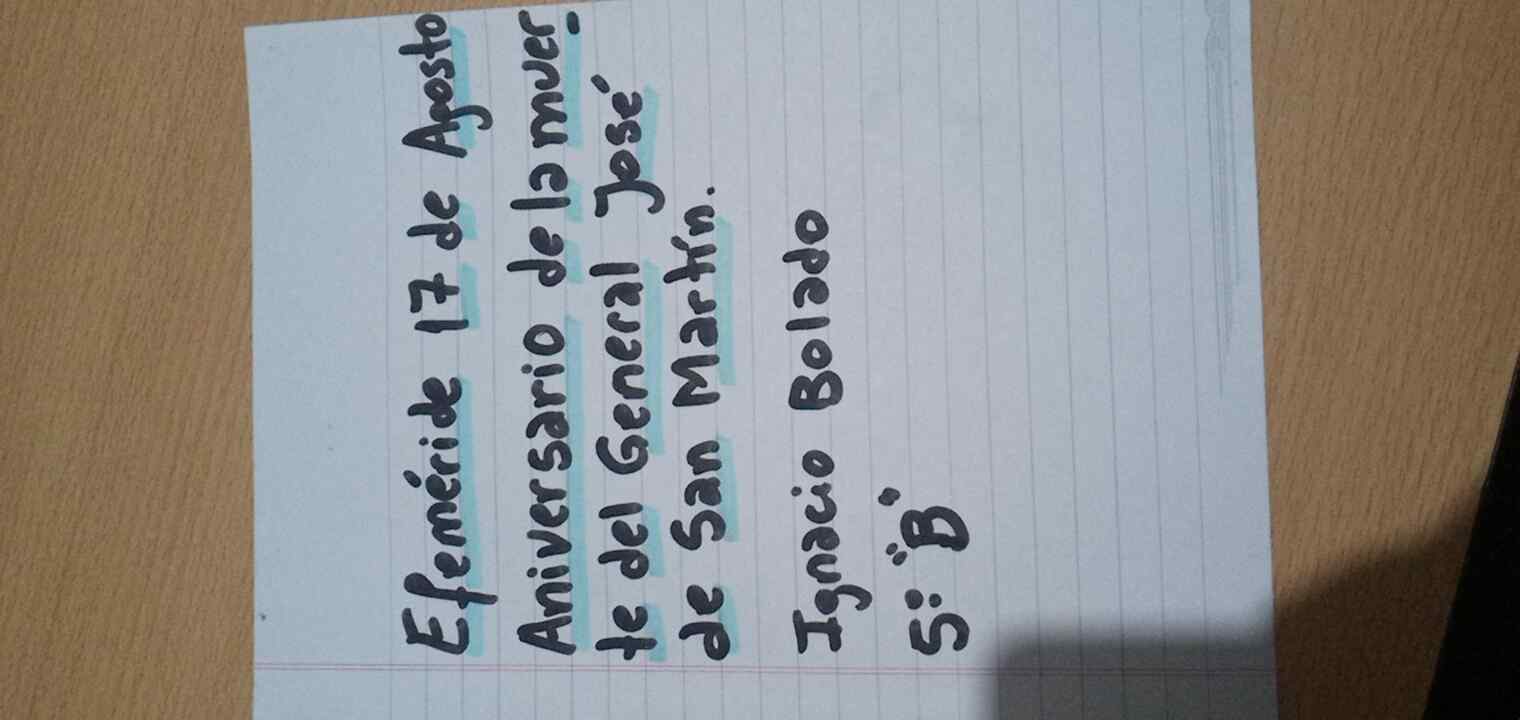 Efeméride 17 de Agosto
Aniversario de la muer-
te del General José
de San Martín.
Ignacio Bolado
5: "B"